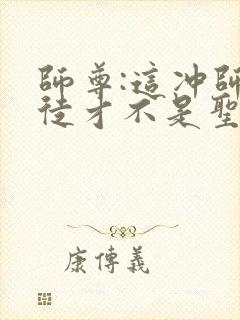 師尊:這冲師
徒才不是聖
康傳義